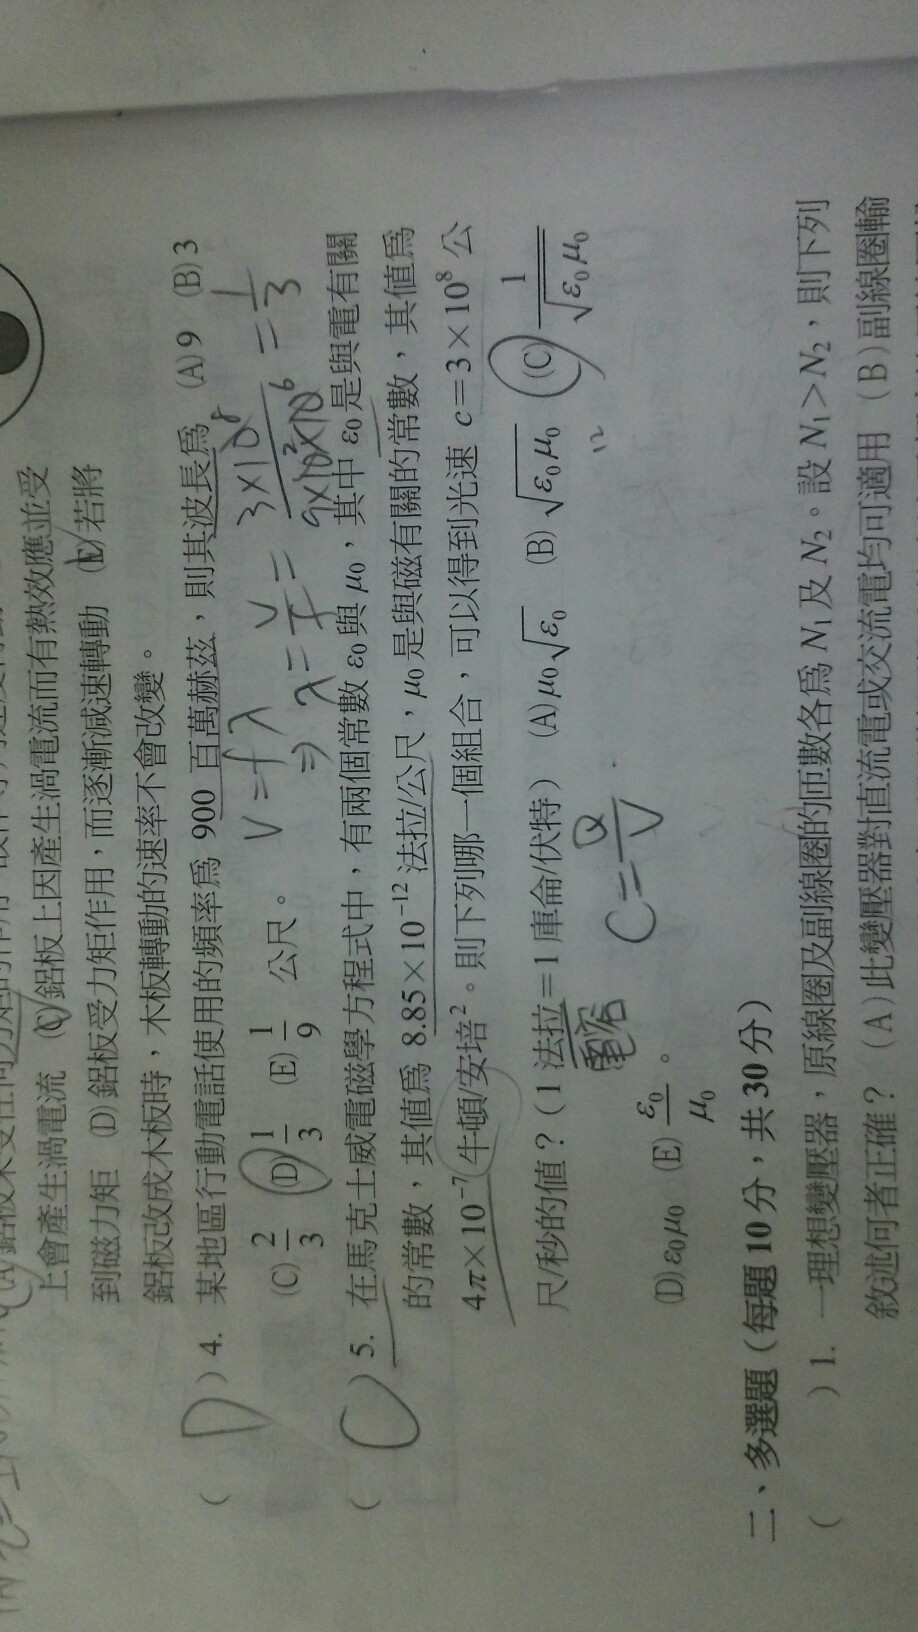 上會產生渦電流 (C)鋁板上因產生渦電流而有熱效應並受
到磁力矩 (D)鋁板受力矩作用，而逐漸減速轉動 (E)若將
鋁板改成木板時，木板轉動的速率不會改變。
(D) 4. 某地區行動電話使用的頻率為 900 百萬赫茲，則其波長為 (A) 9 (B) 3
V = fλ ⇒ λ = V/f = 3×10⁸/9×10²×10⁶ = 1/3
(C) 2/3 (D) 1/3 (E) 1/9 公尺。
(C) 5. 在馬克士威電磁學方程式中，有兩個常數 ε₀ 與 μ₀，其中 ε₀ 是與電有關
的常數，其值為 8.85×10⁻¹² 法拉/公尺，μ₀ 是與磁有關的常數，其值為
4π×10⁻⁷ 牛頓/安培²。則下列哪一個組合，可以得到光速 c＝3×10⁸ 公
尺/秒的值？（1 法拉＝1 庫侖/伏特） (A) μ₀√ε₀ (B) √ε₀μ₀ (C) 1/√ε₀μ₀
電容 C = Q/V
(D) ε₀μ₀ (E) ε₀/μ₀。
二、多選題（每題 10 分，共 30 分）
( ) 1. 一理想變壓器，原線圈及副線圈的匝數各為 N₁ 及 N₂。設 N₁＞N₂，則下列
敘述何者正確？ (A)此變壓器對直流電或交流電均可適用 (B)副線圈輸